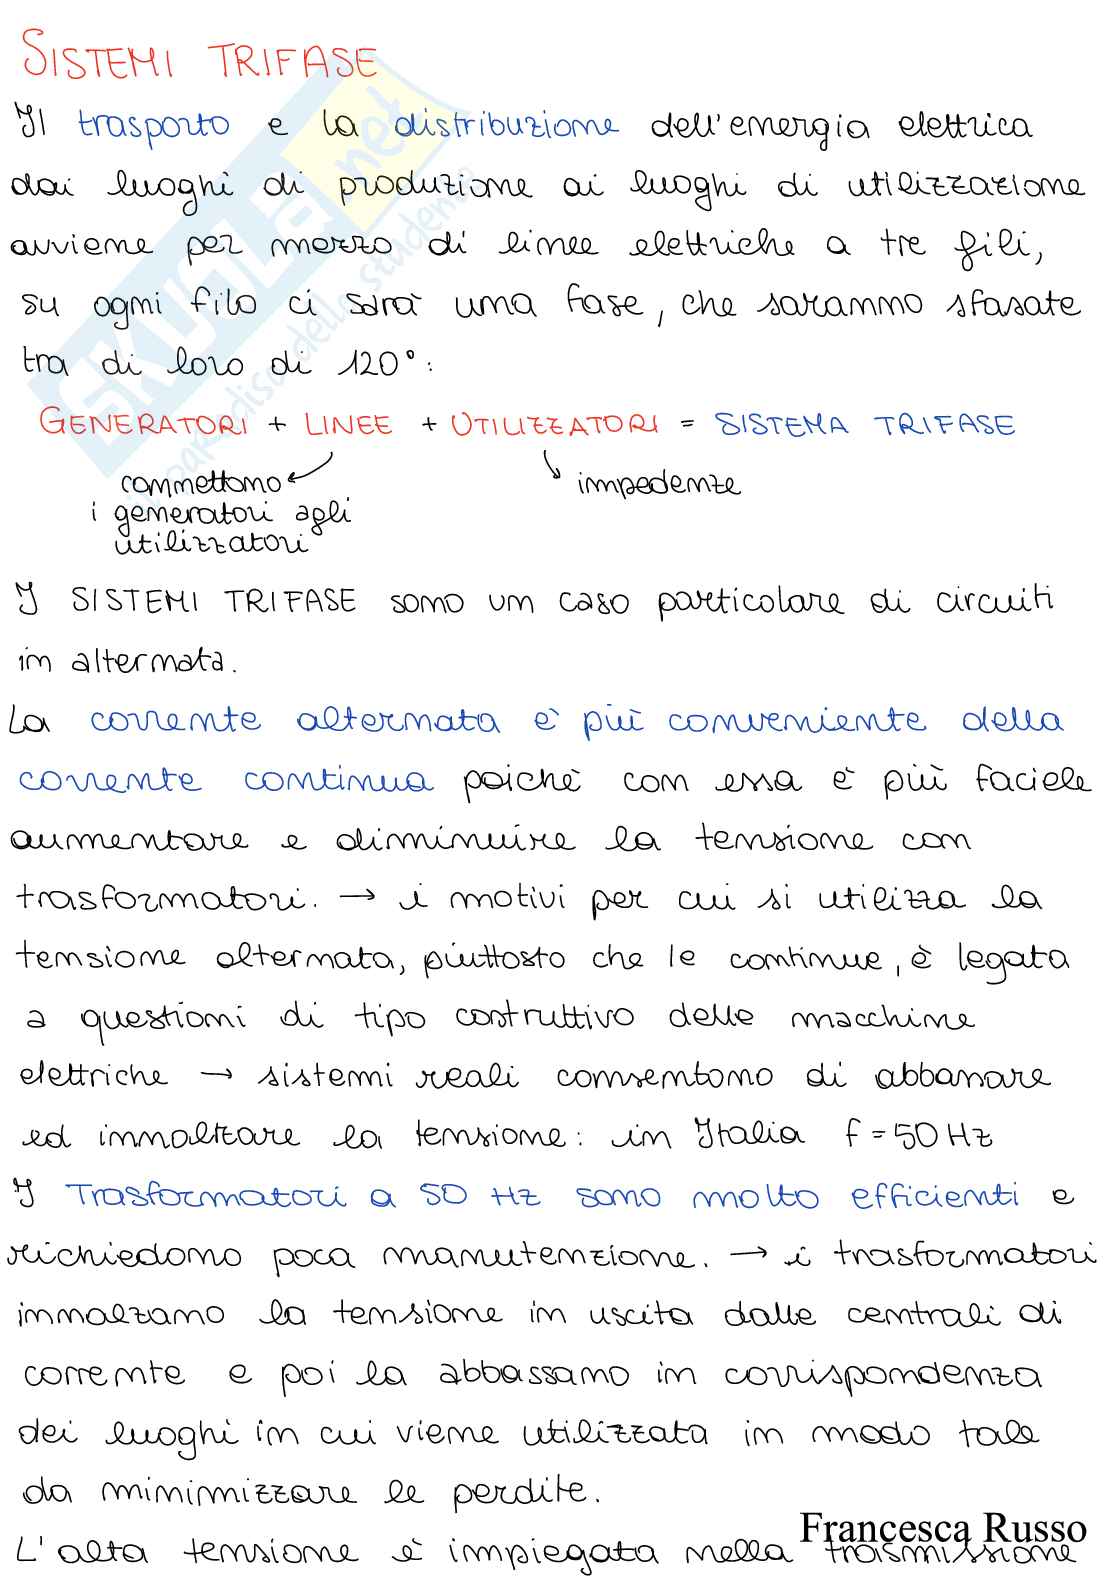 SISTEMI TRIFASE
Il trasporto e la distribuzione dell'energia elettrica
dai luoghi di produzione ai luoghi di utilizzazione
avviene per mezzo di linee elettriche a tre fili,
su ogni filo ci sarà una fase, che saranno sfasate
tra di loro di 120°:
GENERATORI + LINEE + UTILIZZATORI = SISTEMA TRIFASE
connettono
i generatori agli
utilizzatori
impedenze
I SISTEMI TRIFASE sono un caso particolare di circuiti
in alternata.
La corrente alternata è più conveniente della
corrente continua poiché con essa è più faciele
aumentare e diminuire la tensione con
trasformatori. → i motivi per cui si utilizza la
tensione alternata, piuttosto che le continue, è legata
a questioni di tipo costruttivo delle macchine
elettriche → sistemi reali consentono di abbassare
ed innalzare la tensione: in Italia f = 50 Hz
I Trasformatori a 50 Hz sono molto efficienti e
richiedono poca manutenzione. → i trasformatori
innalzano la tensione in uscita dalle centrali di
corrente e poi la abbassano in corrispondenza
dei luoghi in cui viene utilizzata in modo tale
da minimizzare le perdite.
L'alta tensione è impiegata nella trasmissione
Francesca Russo
SKUOLA.net
il paradiso dello studente